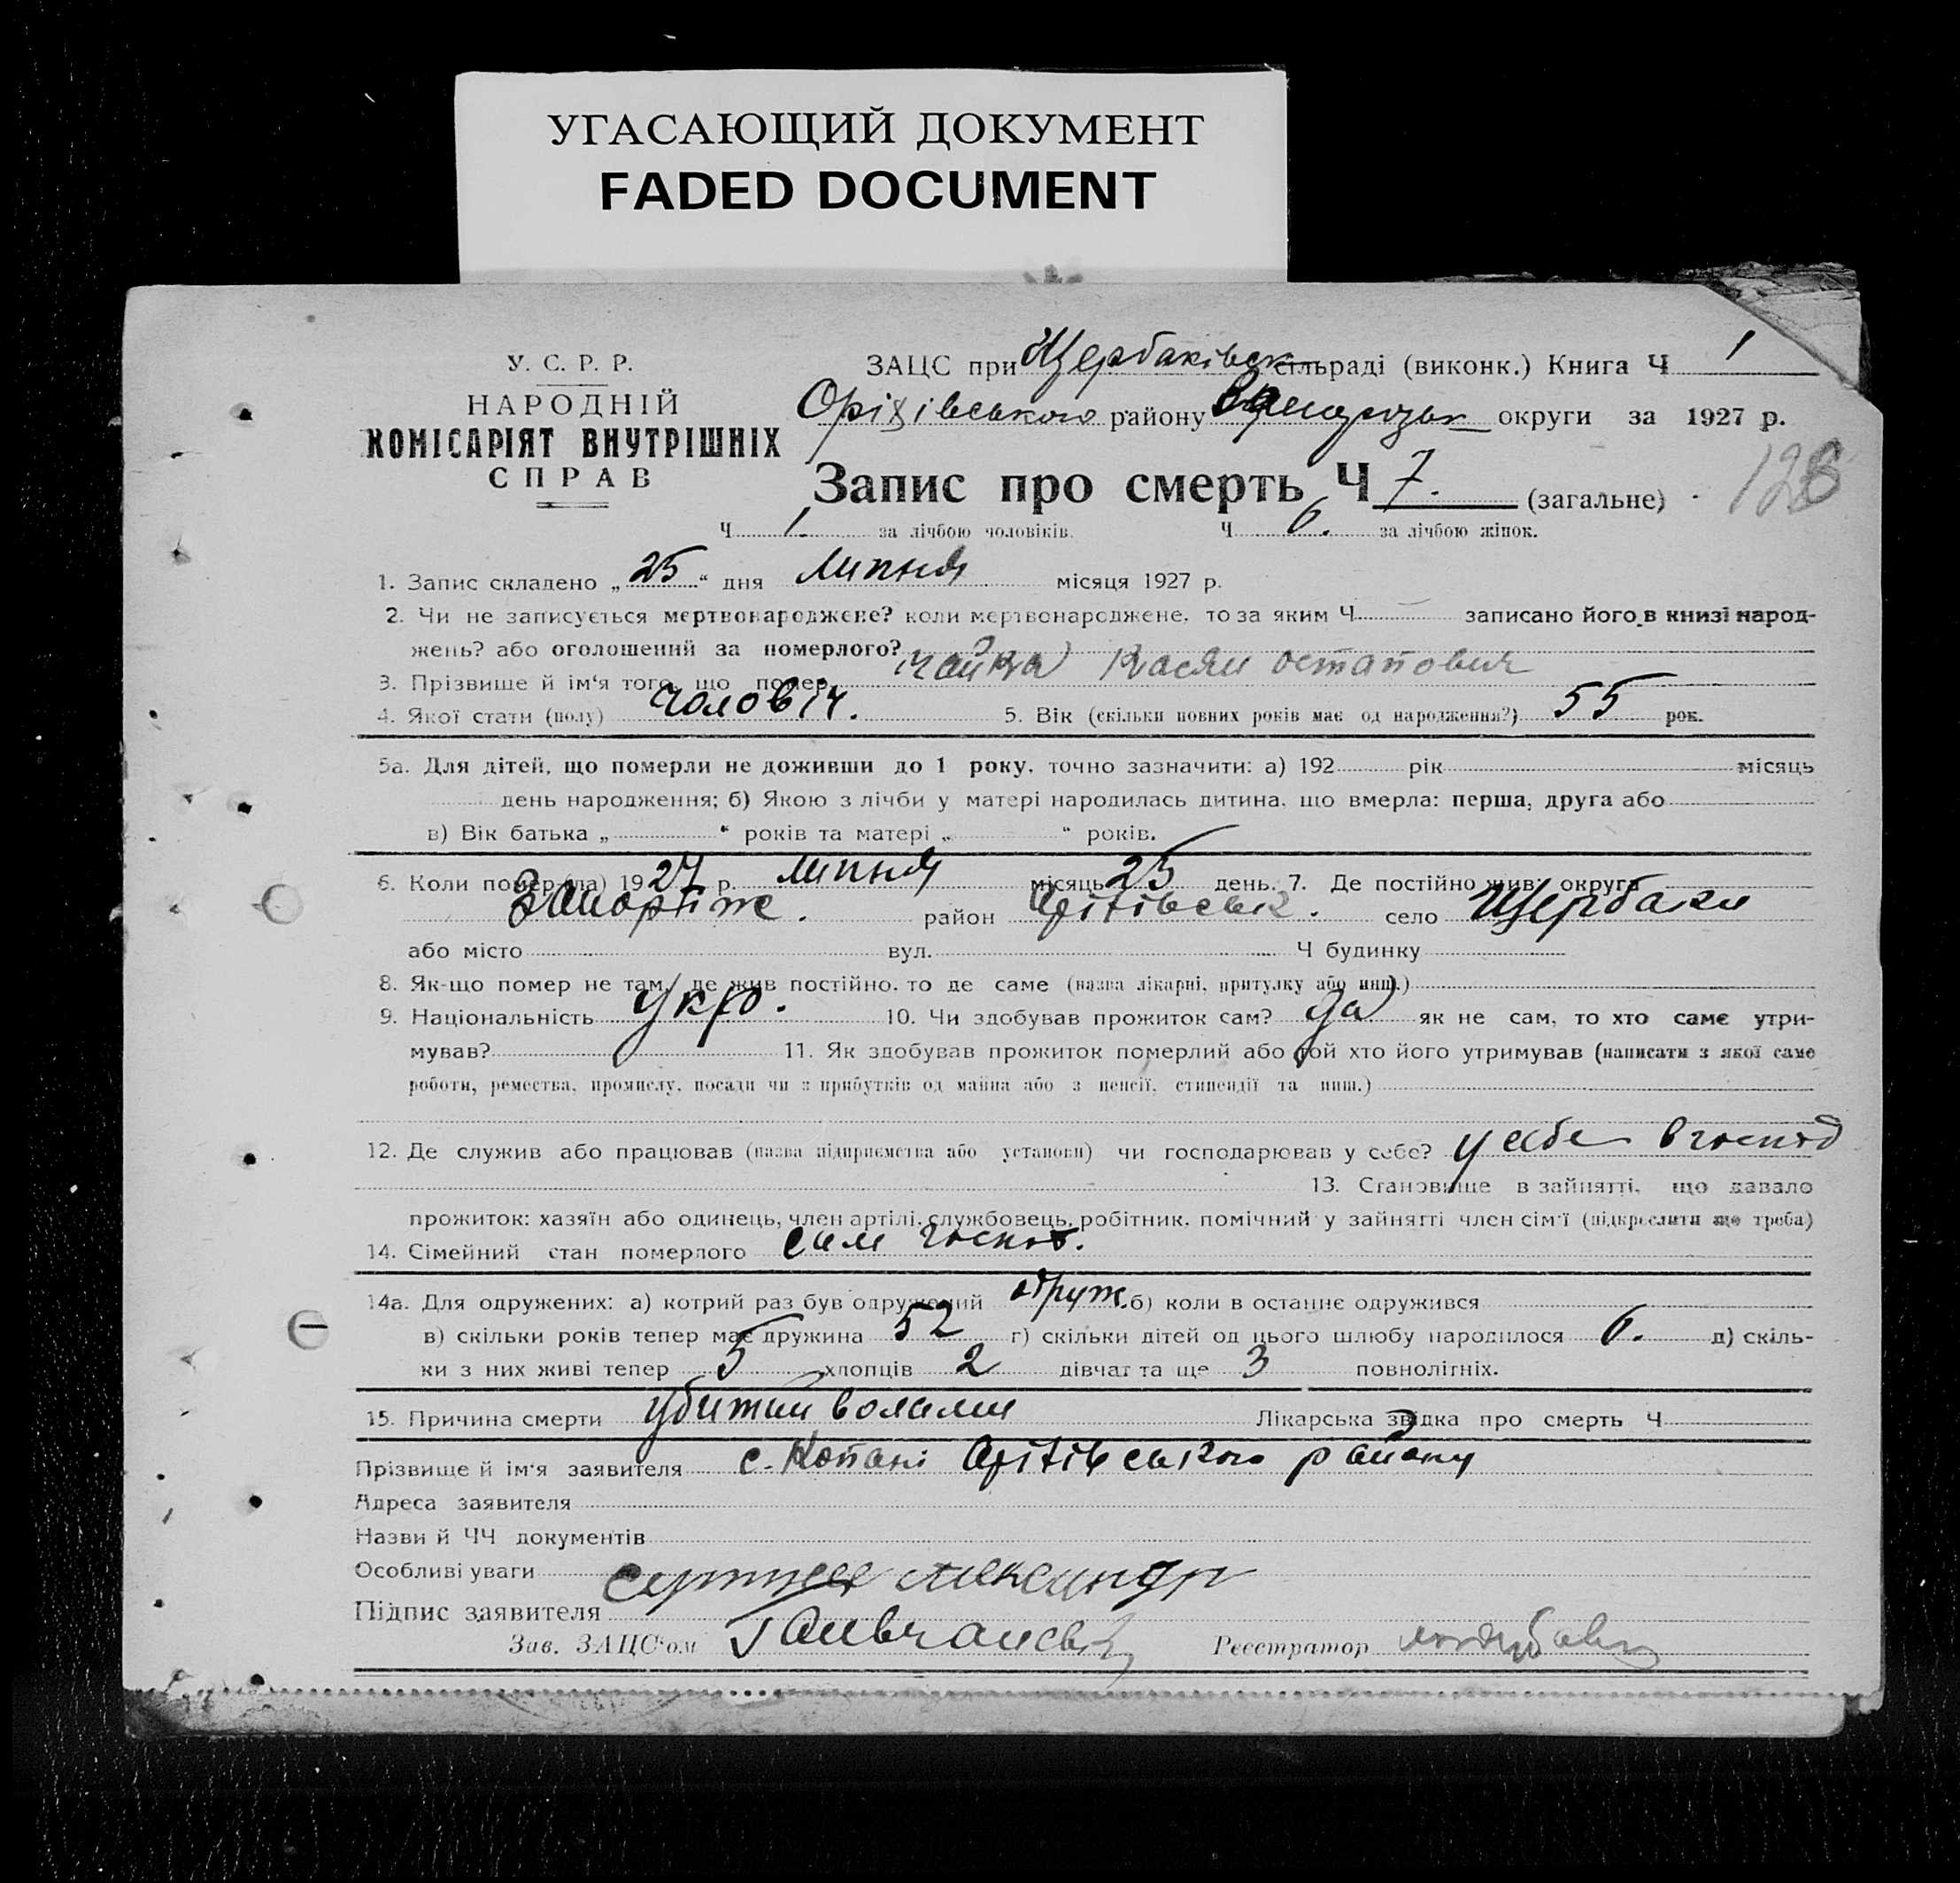 УГАСАЮЩИЙ ДОКУМЕНТ
FADED DOCUMENT
У. С. Р. Р.
НАРОДНІЙ
КОМІСАРІЯТ ВНУТРІШНІХ
СПРАВ
ЗАЦС при Щербаківськ сільраді (виконк.) Книга Ч 1
Оріхівського району округи за 1927 р.
Запис про смерть Ч 7. (загальне)
Ч 1. за лічбою чоловіків. Ч 6. за лічбою жінок.
1. Запис складено „25“ дня Липня місяця 1927 р.
2. Чи не записується мертвонароджене? коли мертвонароджене, то за яким Ч записано його в книзі народ-
жень? або оголошений за померлого?
3. Прізвище й ім'я того, що помер Чайка Касян Остапович
4. Якої стати (полу) Чоловіч. 5. Вік (скільки повних років має од народження?) 55 рок.
5а. Для дітей, що померли не доживши до 1 року, точно зазначити: а) 192 рік місяць
день народження; б) Якою з лічби у матері народилась дитина, що вмерла: перша, друга або
в) Вік батька „ “ років та матері „ “ років.
6. Коли помер (ла) 1927 р. Липня місяць 25 день. 7. Де постійно жив: округа
Запоріж. район Оріхівськ. село Щербаки
або місто вул. Ч будинку
8. Як-що помер не там, де жив постійно, то де саме (назва лікарні, притулку або инш.)
9. Національність укр. 10. Чи здобував прожиток сам? да як не сам, то хто саме утри-
мував? 11. Як здобував прожиток померлий або той хто його утримував (написати з якої саме
роботи, ремества, промислу, посади чи з прибутків од майна або з пенсії, стипендії та инш.)
12. Де служив або працював (назва підприємства або установи) чи господарював у себе? у себе в господ
13. Становище в зайнятті, що давало
прожиток: хазяїн або одинець, член артілі, службовець, робітник, помічний у зайнятті член сім'ї (підкреслити що треба)
14. Сімейний стан померлого сам господ.
14а. Для одружених: а) котрий раз був одружений одруж. б) коли в останнє одружився
в) скільки років тепер має дружина 52 г) скільки дітей од цього шлюбу народилося 6. д) скіль-
ки з них живі тепер 5 хлопців 2 дівчат та ще 3 повнолітніх.
15. Причина смерти убитий волами Лікарська звідка про смерть Ч
Прізвище й ім'я заявителя с. Копані Оріхівського району
Адреса заявителя
Назви й ЧЧ документів
Особливі уваги
Підпис заявителя
Зав. ЗАЦС'ом Реєстратор